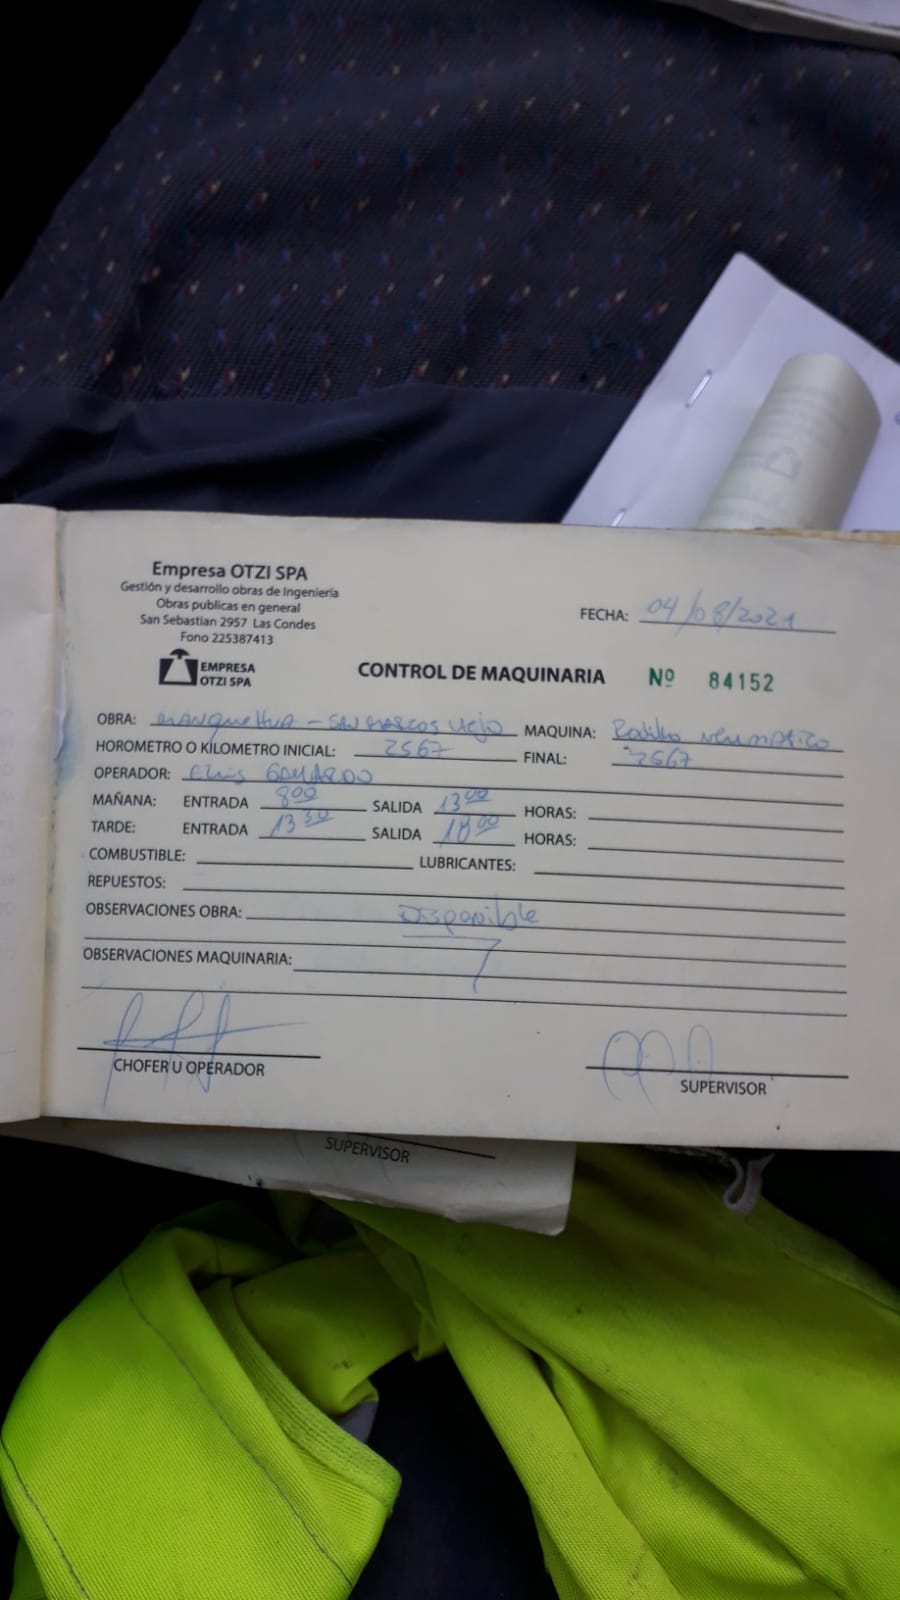 Empresa OTZI SPA
Gestión y desarrollo obras de Ingeniería
Obras publicas en general
San Sebastian 2957 Las Condes
Fono 225387413
EMPRESA
OTZI SPA
FECHA: 04/08/2021
CONTROL DE MAQUINARIA Nº 84152
OBRA: - SAN MARCOS MAQUINA: Rodillo Neumatico
HOROMETRO O KILOMETRO INICIAL: 2567 FINAL: 2567
OPERADOR:
MAÑANA: ENTRADA 800 SALIDA 1300 HORAS:
TARDE: ENTRADA 13 30 SALIDA 18 00 HORAS:
COMBUSTIBLE: LUBRICANTES:
REPUESTOS:
OBSERVACIONES OBRA: Disponible
OBSERVACIONES MAQUINARIA:
CHOFER U OPERADOR
SUPERVISOR
SUPERVISOR